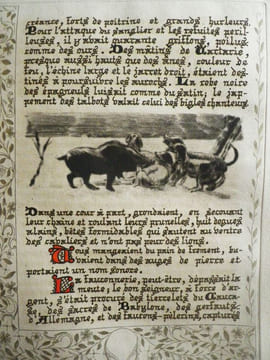 créance, forts de poitrine et grands hurleurs.
Pour l'attaque du sanglier et les refuites péril-
leuses, il y avait quarante griffons, poilus
comme des ours. Des mâtins de Tartarie,
presque aussi hauts que des ânes, couleur de
feu, l'échine large et le jarret droit, étaient des-
tinés à poursuivre les aurochs. La robe noire
des épagneuls luisait comme du satin; le jap-
pement des talbots valait celui des bigles chanteurs
Dans une cour à part, grondaient, en secouant
leur chaîne et roulant leurs prunelles, huit dogues
alains, bêtes formidables qui sautent au ventre
des cavaliers et n'ont pas peur des lions.
Tous mangeaient du pain de froment, bu-
vaient dans des auges de pierre et
portaient un nom sonore.
La fauconnerie, peut-être, dépassait la
meute; le bon seigneur, à force d'ar-
gent, s'était procuré des tiercelets du Cauca-
se, des sacres de Babylone, des gerfauts
d'Allemagne, et des faucons-pèlerins, capturés